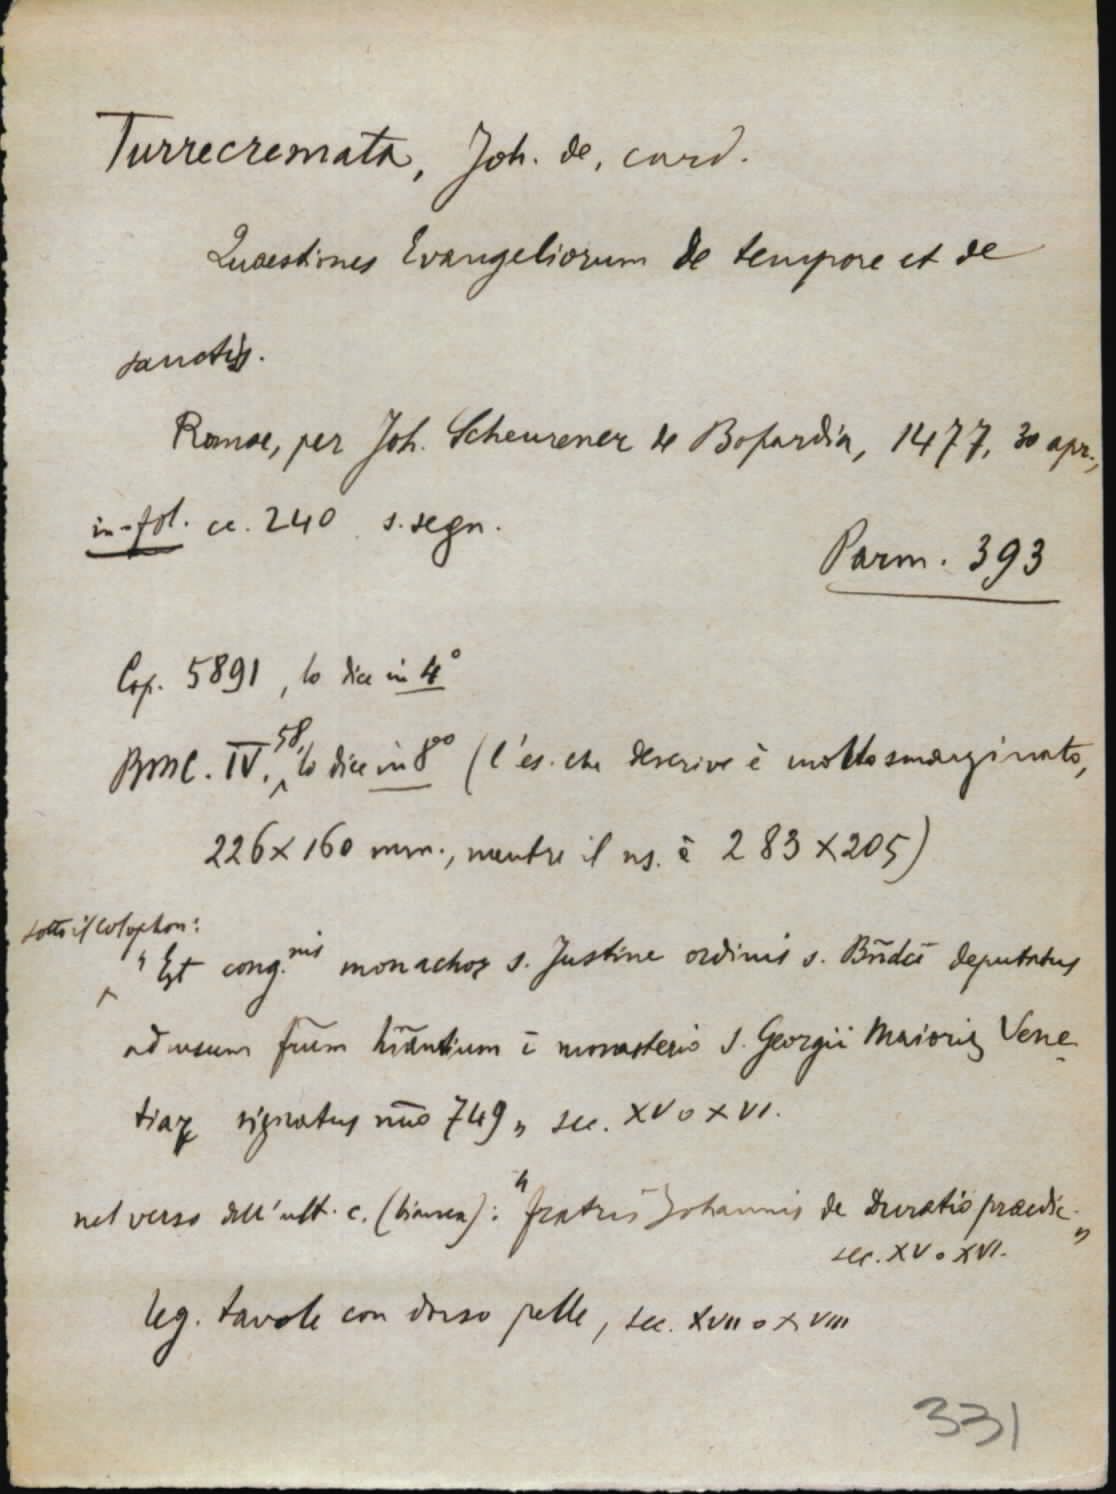 Turrecremata, Joh. de, card.
Quaestiones Evangeliorum de tempore et de
sanctis.
Romae, per Joh. Scheurener de Bopardia, 1477, 30 apr.,
in-fol. cc. 240 s. segn.
Parm. 393
Cop. 5891, lo dice in 4°
BMC. IV. 58, lo dice in 8°° (l'es. che descrive è molto smarginato,
226 x 160 mm., mentre il ns. è 283 x 205)
sotto il colophon:
"Est cong.nis monachoꝝ s. Justine ordinis s. Bn̄dcī deputatus
ad usum fr̄um hītantium ī monasterio S. Georgii Maioris Vene
tiaꝝ signatus nūo 749" sec. XV o XVI.
nel verso dell'ult. c. (bianca): "fratris Johannis de praedic."
sec. XV o XVI.
leg. tavole con dorso pelle, sec. XVII o XVIII
331